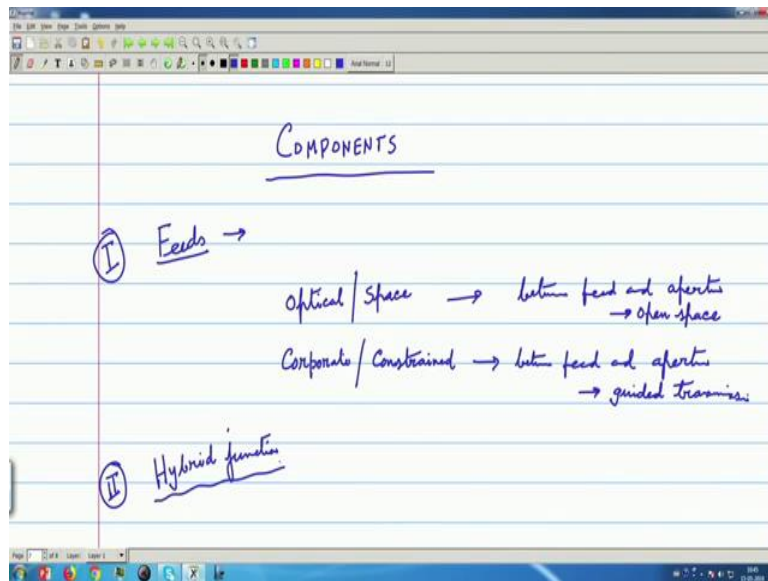 File Edit View Page Tools Options Help
Arial Normal 12
COMPONENTS
I Feeds →
Optical / Space → between feed and aperture
→ open space
Corporate / Constrained → between feed and aperture
→ guided transmiss.
II Hybrid junction
Page 7 of 8 Layer: Layer 1